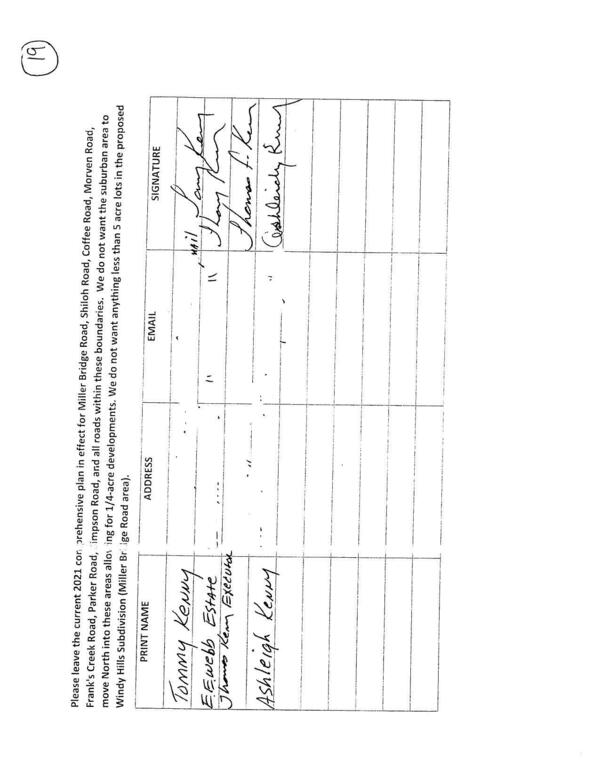 19
Please leave the current 2021 com prehensive plan in effect for Miller Bridge Road, Shiloh Road, Coffee Road, Morven Road,
Frank's Creek Road, Parker Road, impson Road, and all roads within these boundaries. We do not want the suburban area to
move North into these areas allow ing for 1/4-acre developments. We do not want anything less than 5 acre lots in the proposed
Windy Hills Subdivision (Miller Br ge Road area).
PRINT NAME ADDRESS EMAIL SIGNATURE
Tommy Kenny mail
E.E. Webb Estate
Thomas Kenny Executor Thomas F. Ken
Ashleigh Kenny Ashleigh